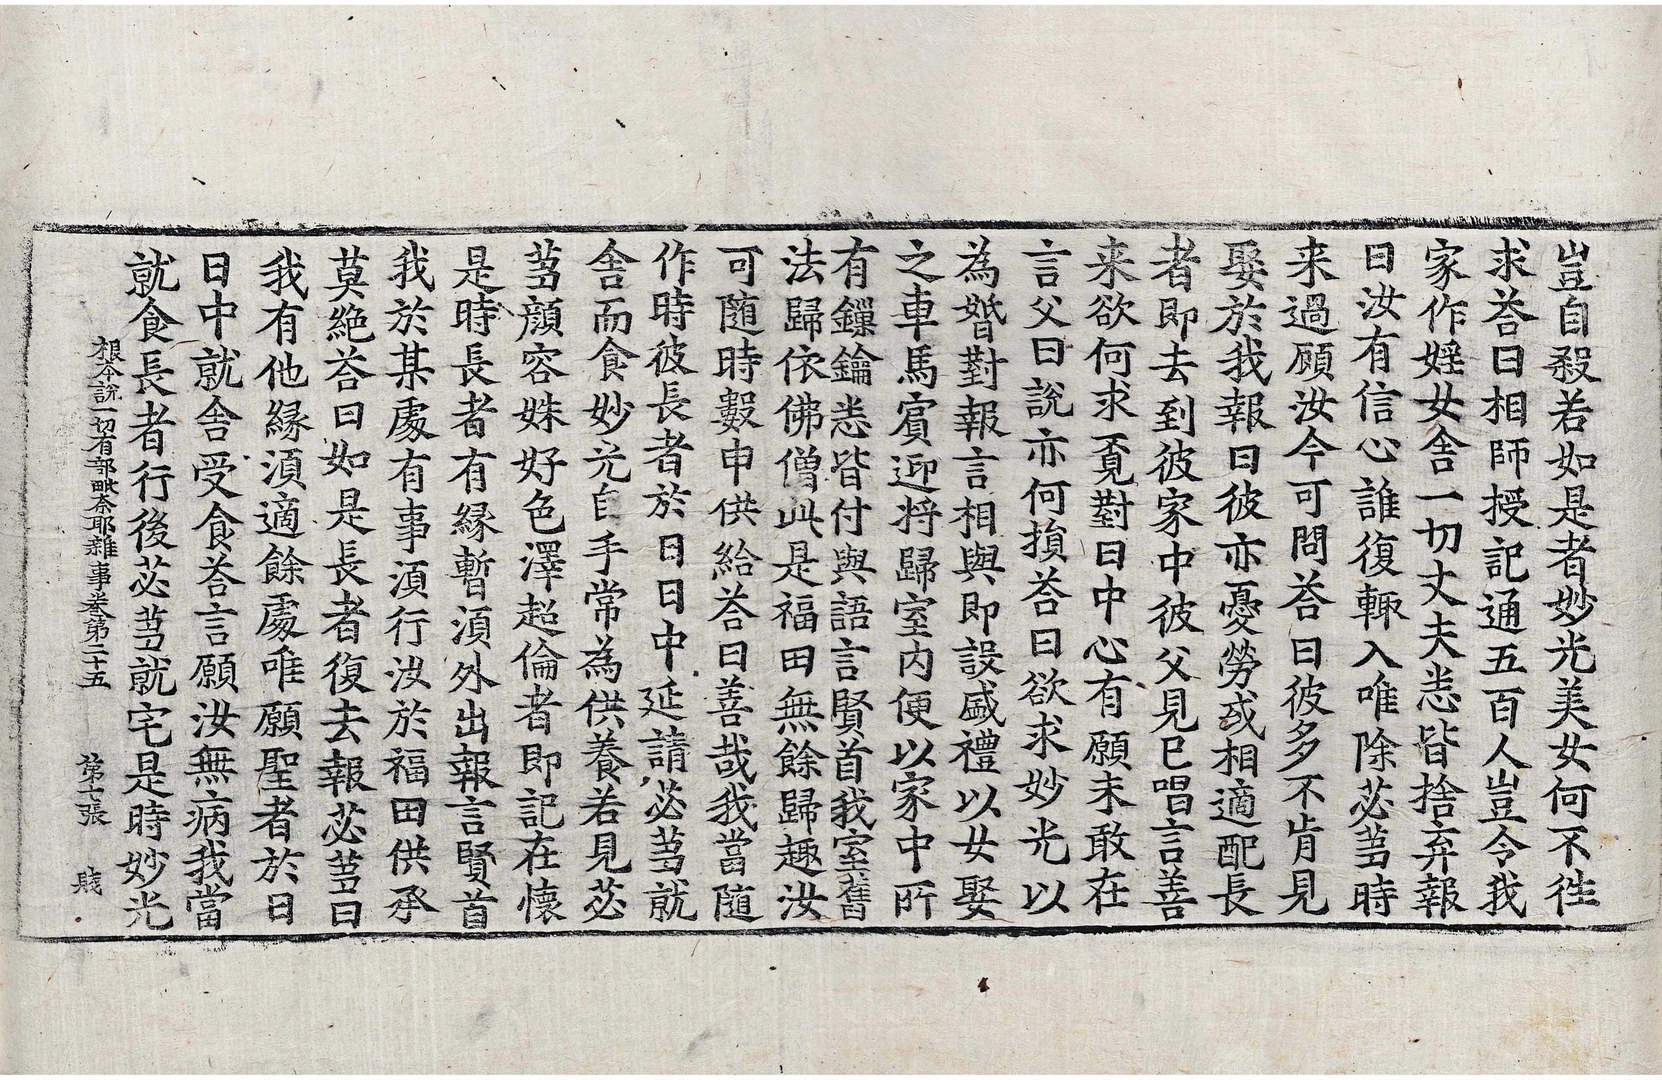 豈自殺若如是者妙光美女何不往
求荅曰相師授記通五百人豈令我
家作婬女舍一切丈夫悉皆捨弃報
曰汝有信心誰復輙入唯除苾蒭時
来過願汝今可問荅曰彼多不肯見
娶於我報曰彼亦憂勞或相適配長
者即去到彼家中彼父見已唱言善
来欲何求覔對曰中心有願未敢在
言父曰說亦何損荅曰欲求妙光以
為婚對報言相與即設盛禮以女娶
之車馬賓迎将歸室內便以家中所
有鏁鑰悉皆付與語言賢首我室舊
法歸依佛僧此是福田無餘歸趣汝
可隨時數申供給荅曰善哉我當隨
作時彼長者於日日中延請苾蒭就
舍而食妙光自手常為供養若見苾
蒭顏容姝好色澤超倫者即記在懷
是時長者有縁暫湏外出報言賢首
我於某處有事湏行汝於福田供承
莫絶荅曰如是長者復去報苾蒭曰
我有他縁湏適餘處唯願聖者於日
日中就舍受食荅言願汝無病我當
就食長者行後苾蒭就宅是時妙光
根本說一切有部毗奈耶雜事卷第二十五 第七張 賤